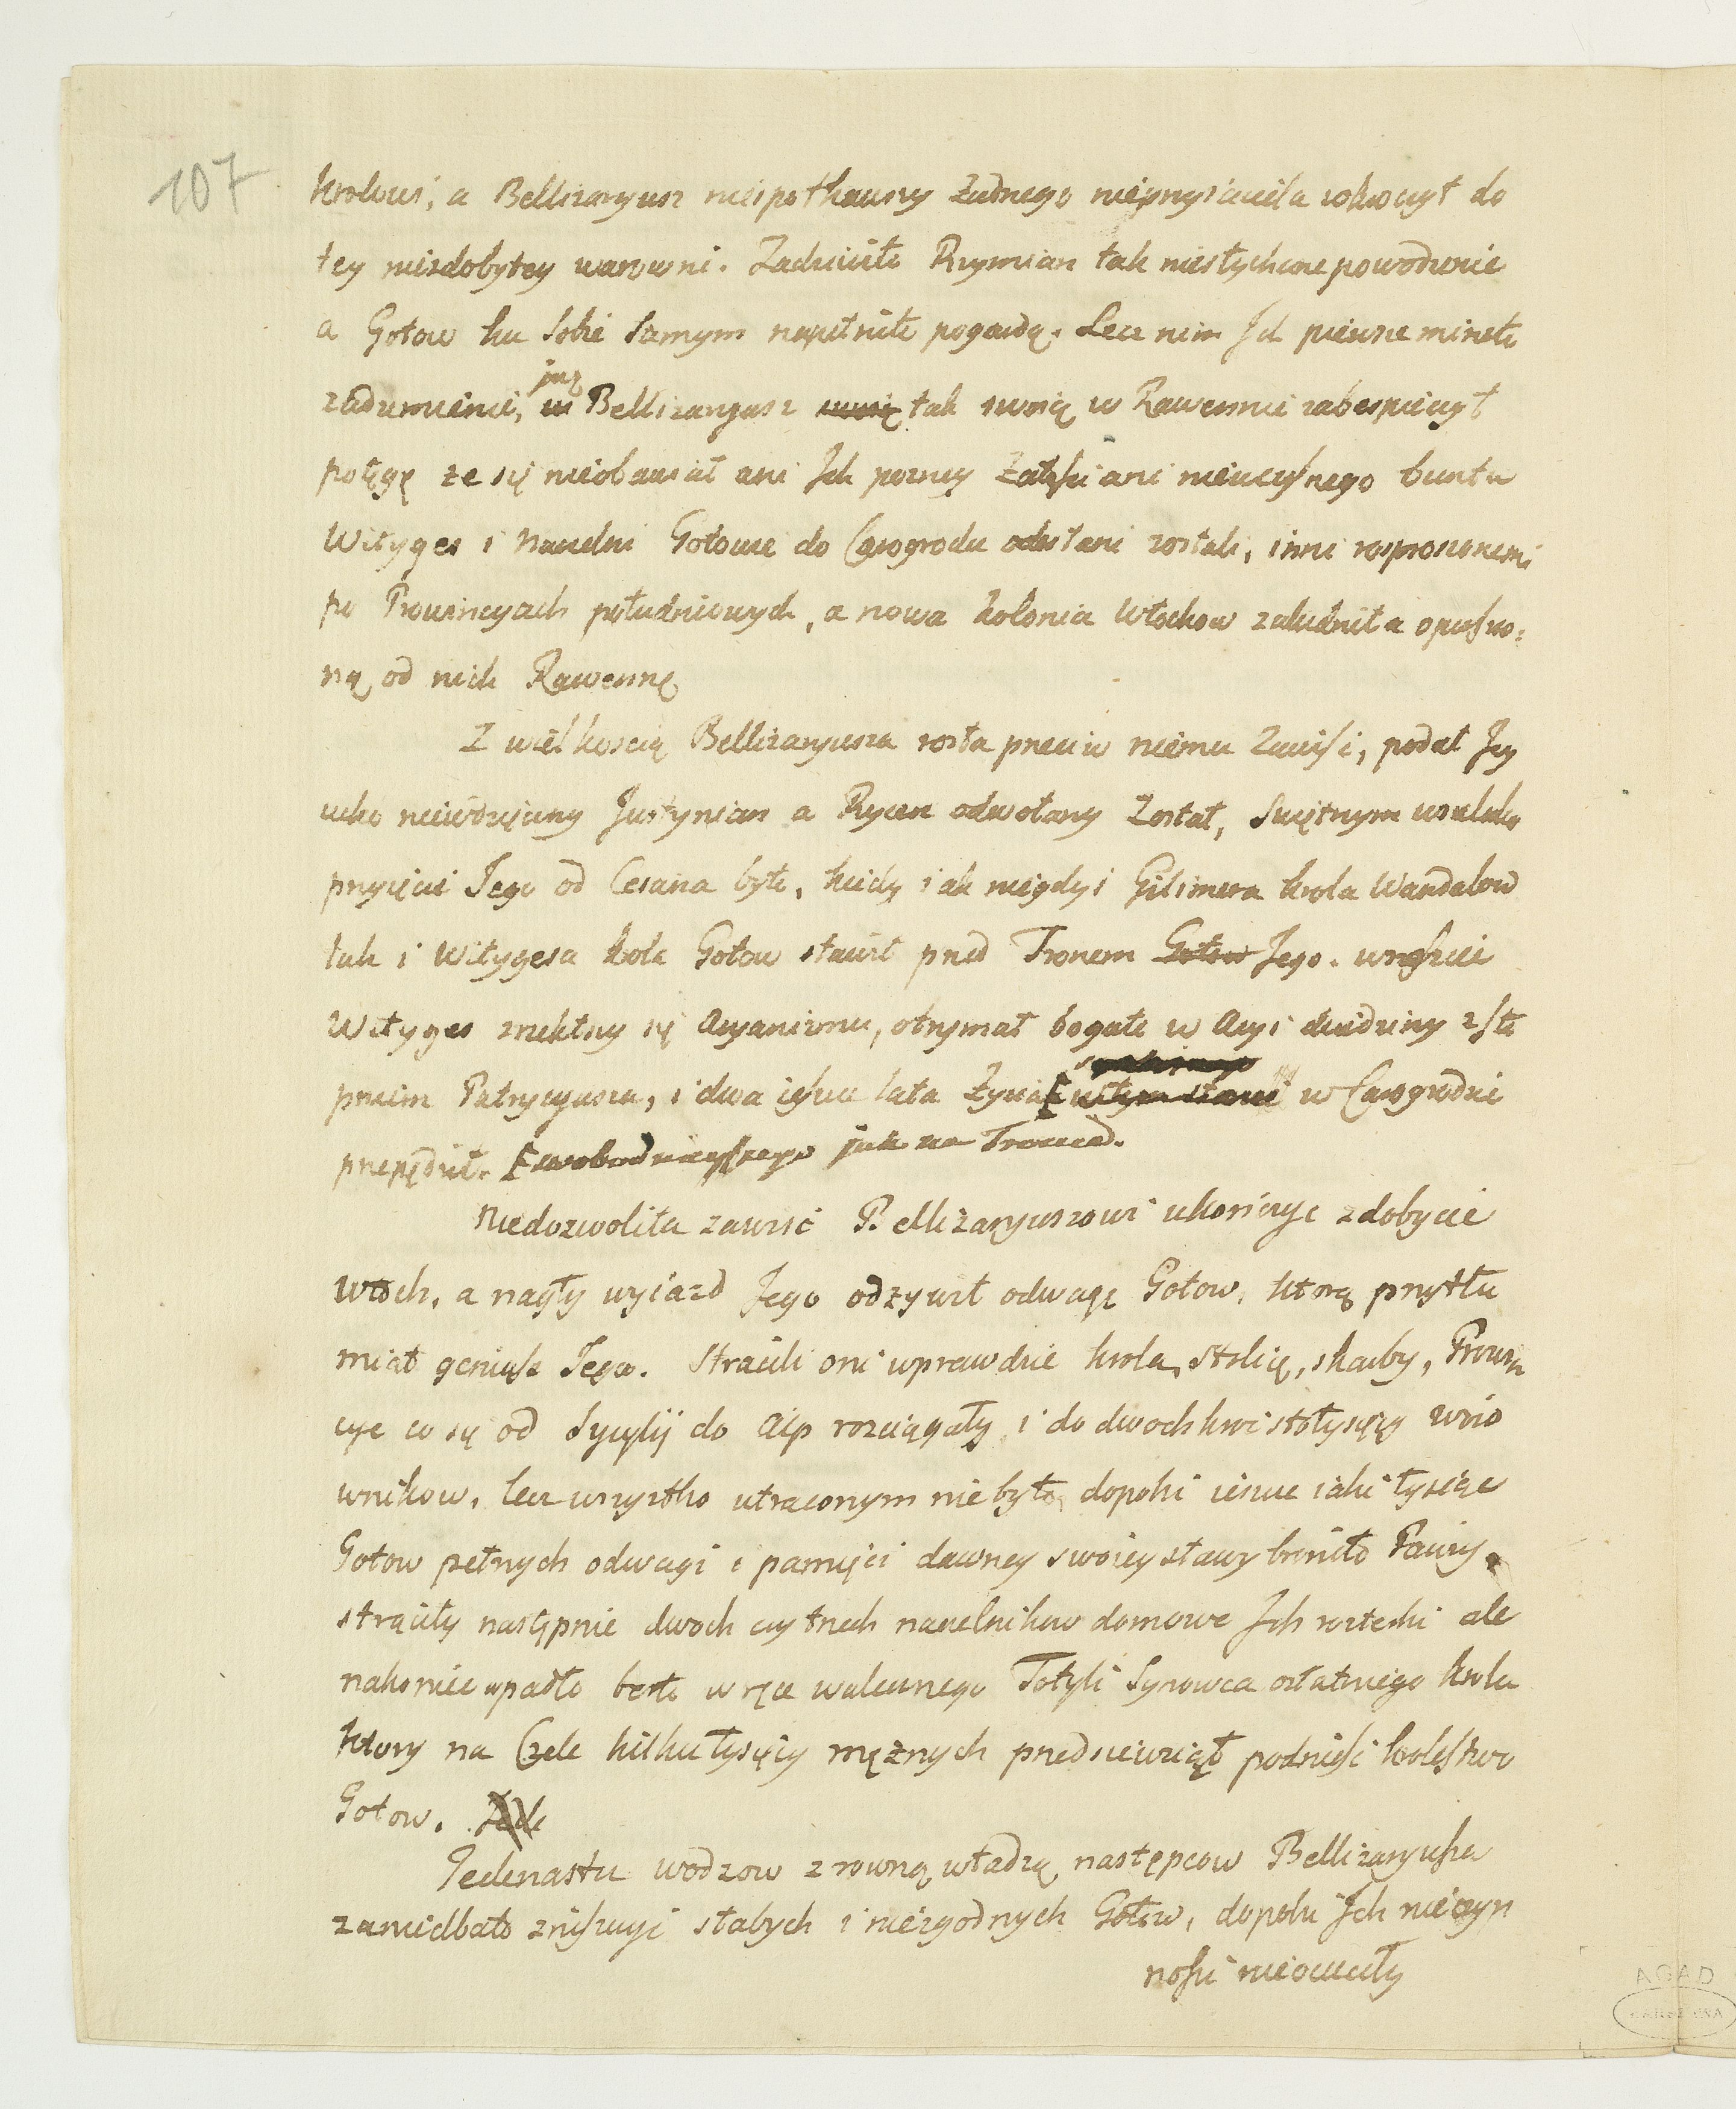 107
krolowi, a Bellizaryusz niespotkawszy żadnego nieprzyiaciela wkroczył do
tey niezdobytey warowni. Zadziwiło Rzymian tak niesłychane powodzenie
a Gotow ku sobie samym napełniło pogardą. Lecz nim Ich pierwsze mineło
zadumienie, już Bellizaryusz tak swoią w Rawennie zabespieczył
potęgę ze się nieobawiał ani Ich pozney żałości ani nieuczesnego buntu
Wityges i naczelni Gotowie do Carogrodu odesłani zostali, inni rosproszonemi
po Prowincyach południowych, a nowa kolonia Włochow zaludniła opuszczo:
ną od nich Rawennę
Z wielkoscią Bellizaryusza rosła przeciw niemu Zawiść, podał Jey
ucho niewdzięczny Justynian a Rycerz odwołany Został, Swiętnym wszelako
przyięcie Jego od Cesarza było, kiedy iak niegdyś Gilimera krola Wandalow
tak i Witygesa krola Gotow stawił przed Tronem Gotow Jego. wreszcie
Wityges zrzekłszy się Aryanizmu, otrzymał bogate w Azyi dziedziny z stop
niem Patrycyusza, i dwa ieszcze lata życia [w tym stanie w Carogrodzie
przepędził. [swobodnieyszego jak na Tronie.
Niedozwoliła zawisć Bellizaryuszowi ukończyć zdobycie
Włoch, a nagły wyiazd Jego odżywił odwagę Gotow, ktorą przytłu
miał geniusz Jego. Stracili oni wprawdzie krola, stolicę, skarby, Prowin
cye co się od Sycylij do Alp rozciągały, i do dwochkroć stotysięcy woio
wnikow, lecz wszystko utraconym nie było, dopoki ieszcze iakie tysiące
Gotow pełnych odwagi i pamięci dawney swoiey sławy broniło Pawiy.
strąciły następnie dwoch czy trzech naczelnikow domowe Ich rosterki ale
nakoniec wpadło berło w ręce walecznego Totyli Synowca ostatniego krola
ktory na Czele kilku tysięcy mężnych przedsiewziął podnieść krolestwo
Gotow.
Jedenastu wodzow z rowną władzą, następcow Bellizaryusza
zaniedbało zniszczyć słabych i niezgodnych Gotow, dopoki Ich nieczyn
nosci nieocuciły
AGAD
WARSZAWA